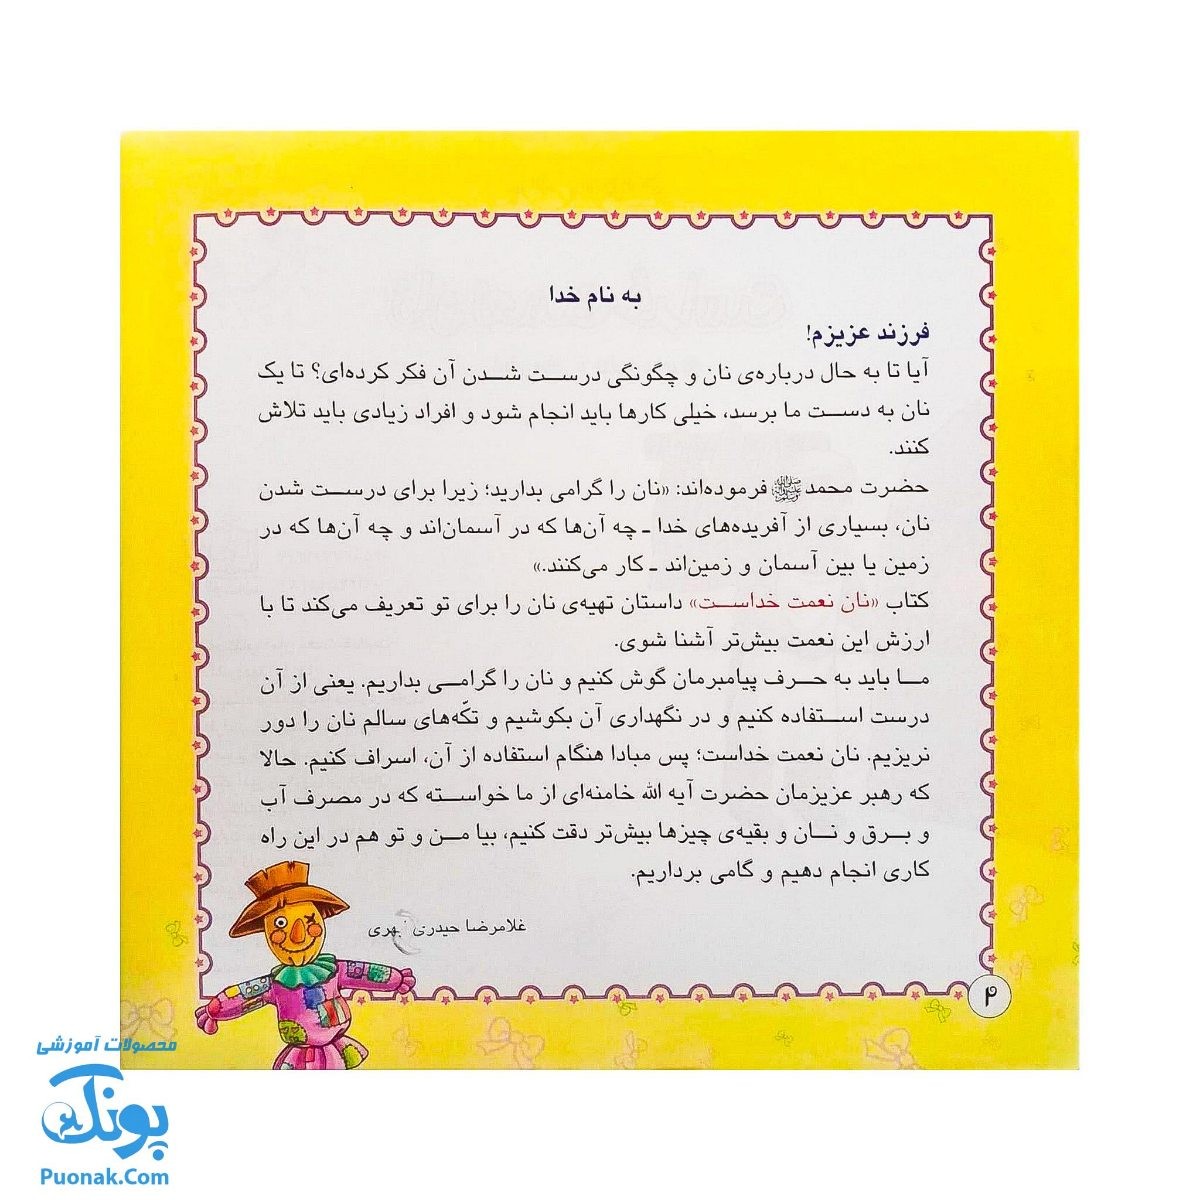 به نام خدا
فرزند عزیزم!
آیا تا به حال درباره‌ی نان و چگونگی درست شدن آن فکر کرده‌ای؟ تا یک
نان به دست ما برسد، خیلی کارها باید انجام شود و افراد زیادی باید تلاش
کنند.
حضرت محمدﷺ فرموده‌اند: «نان را گرامی بدارید؛ زیرا برای درست شدن
نان، بسیاری از آفریده‌های خدا ـ چه آن‌ها که در آسمان‌اند و چه آن‌ها که در
زمین یا بین آسمان و زمین‌اند ـ کار می‌کنند.»
کتاب «نان نعمت خداست» داستان تهیه‌ی نان را برای تو تعریف می‌کند تا با
ارزش این نعمت بیش‌تر آشنا شوی.
ما باید به حرف پیامبرمان گوش کنیم و نان را گرامی بداریم. یعنی از آن
درست استفاده کنیم و در نگهداری آن بکوشیم و تکّه‌های سالم نان را دور
نریزیم. نان نعمت خداست؛ پس مبادا هنگام استفاده از آن، اسراف کنیم. حالا
که رهبر عزیزمان حضرت آیه الله خامنه‌ای از ما خواسته که در مصرف آب
و برق و نان و بقیه‌ی چیزها بیش‌تر دقت کنیم، بیا من و تو هم در این راه
کاری انجام دهیم و گامی برداریم.
غلامرضا حیدری
۴
محصولات آموزشی
پونک
Puonak.Com